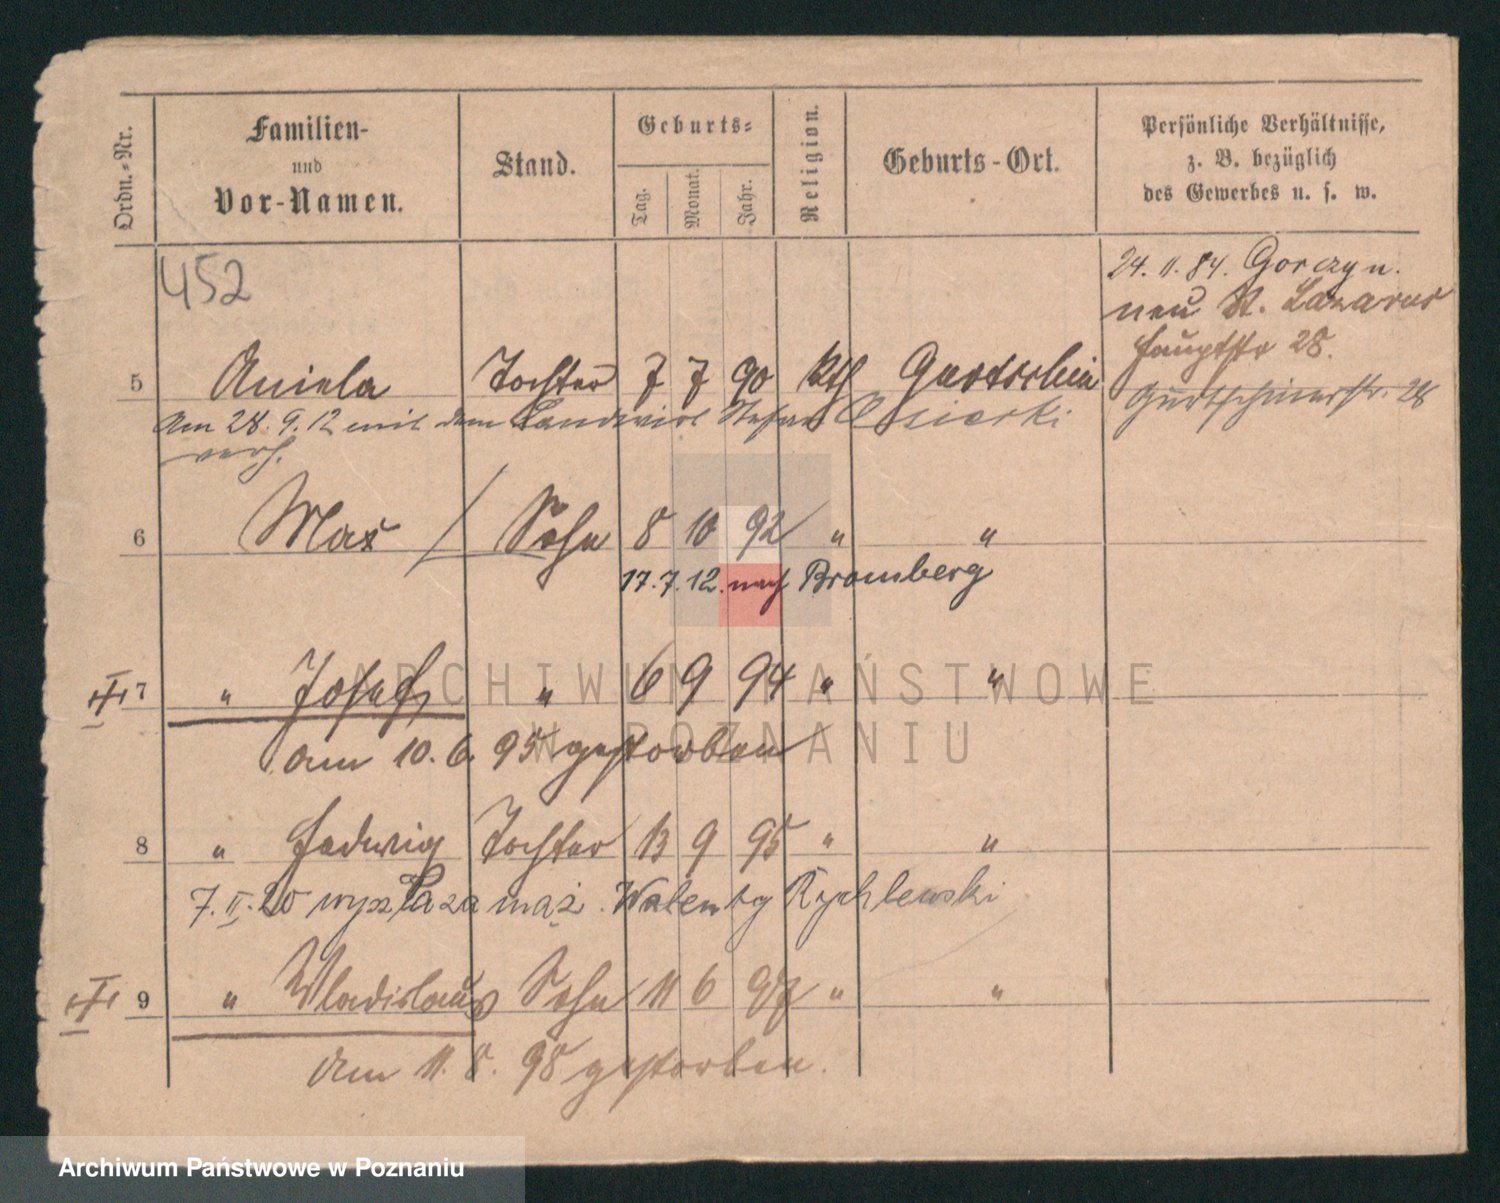 Ordn.-Nr.
Familien-
und
Vor-Namen.
Stand.
Geburts-
Tag.
Monat.
Jahr.
Religion.
Geburts-Ort.
Persönliche Verhältnisse,
z. B. bezüglich
des Gewerbes u. s. w.
452
24. 11. 84. Gorczyn.
neu St. Lazarus
Hauptstr 28.
5 Aniela Tochter 7 7 90 kth Gurtschin
Gurtschinerstr. 28
Am 28. 9. 12 mit dem Landwirt Stefan
verh.
6 Max Sohn 8 10 92 " "
17. 7. 12. nach Bromberg
7 " Josef " 6 9 94 " "
am 10. 6. 95 gestorben
8 " Hedwig Tochter 13 9 95 " "
7. II. 20 wyszła za mąż. Walenty Rychlewski
9 " Wladislaus Sohn 11 6 97 " "
am 11. 8. 98 gestorben.
ARCHIWUM PAŃSTWOWE
W POZNANIU
Archiwum Państwowe w Poznaniu